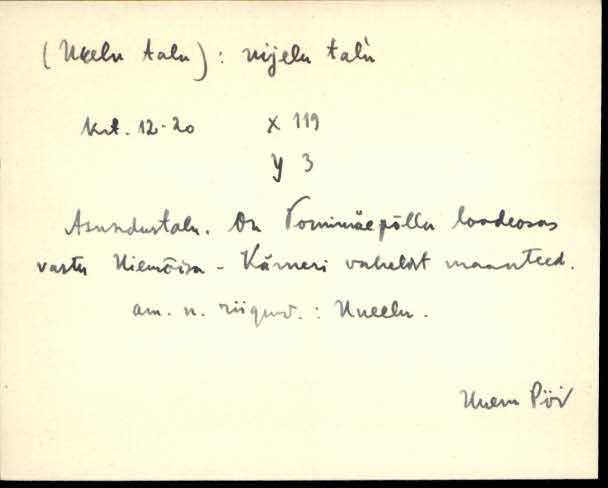 (Uuelu talu) : uijelu talu
Krt. 12-20 X 119
Y 3
Asundustalu. On Torninmäepõllu loodeosas
vastu Uiemõisa - Kärneri vahelist maanteed.
am. n. riigund. : Uueelu.
Uuem Pöi